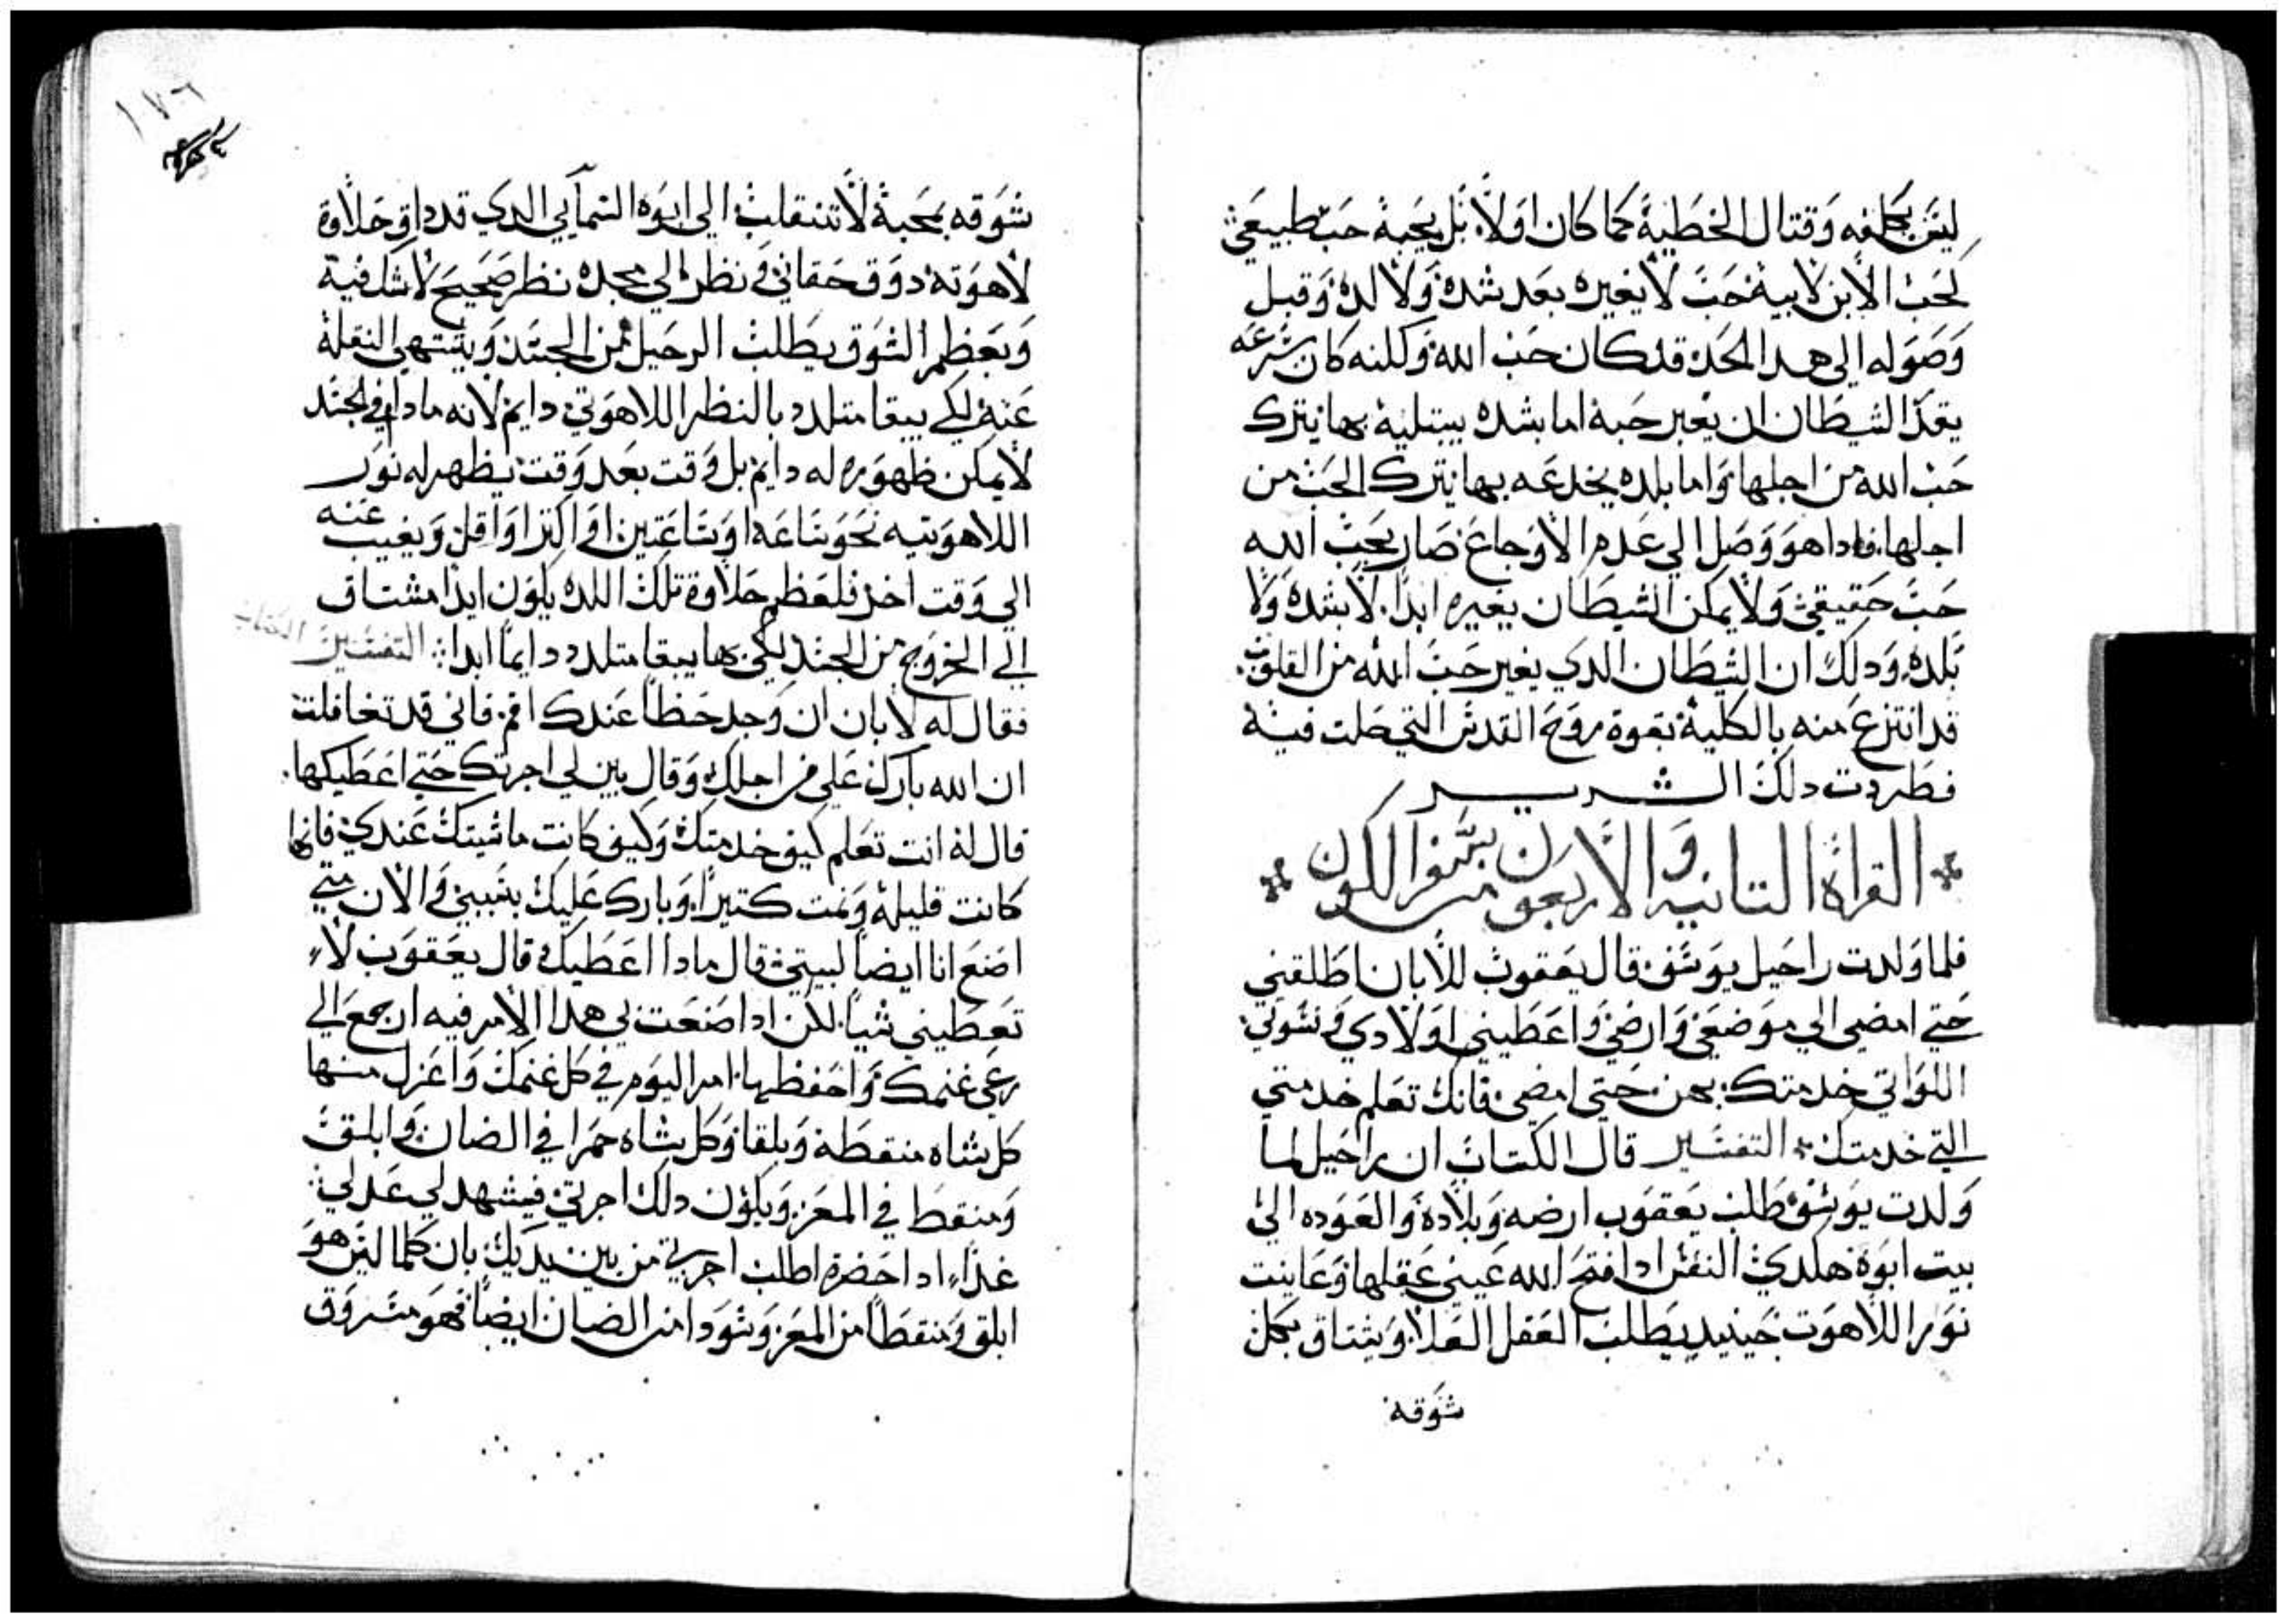 ليس بكلفه وقتال الخطية كما كان اولا بل بمحبة حب طبيعي
كحب الابن لابيه حب لا يغيره بعد شده ولا لده وقبل
وصوله الي هدا الحد قد كان حب الله ولكنه كان شرعه
يقدر الشيطان ان يغير حبه اما بشده يبتليه بها يترك
حب الله من اجلها واما بلده يخدعه بها يترك الحب من
اجلها فادا هو وصل الي عدم الاوجاع صار يحب الله
حب حقيقي ولا يمكن الشيطان يغيره ابدا لا بشده ولا
بلده ودلك ان الشيطان الدي يغير حب الله من القلوب
قد انتزع منه بالكلية بقوة روح القدس التي حلت فيه
فطردت دلك الشرير
القراة التانيه والاربعون من سفر الكون
فلما ولدت راحيل يوسف قال يعقوب للابان اطلقني
حتي امضي الي موضعي وارضي واعطيني اولادي ونسوتي
اللواتي خدمتك بهن حتي امضي فانك تعلم خدمتي
التي خدمتك التفسير قال الكتاب ان راحيل لما
ولدت يوسف طلب يعقوب ارضه وبلاده والعوده الي
بيت ابوه هكدي النفس ادا فتح الله عيني عقلها وعاينت
نور اللاهوت حينيد يطلب العقل العلا ويشتاق بكل
شوقه
١٧٦
شوقه بمحبة لا تنقلب الي ابوه السمايي الدي قد داق حلاوة
لاهوته دوق حقاني ونظر الي مجده نظر صحيح لا شك فيه
وبعظم الشوق يطلب الرحيل من الجسد ويشتهي النقلة
عنه لكي يبقا متلدد بالنظر اللاهوتي دايم لانه مادام في الجسد
لا يمكن ظهوره له دايم بل وقت بعد وقت يظهر له نور
اللاهوتيه نحو ساعه او ساعتين او اكتر او اقل ويغيب عنه
الي وقت اخر فلعظم حلاوة تلك اللده يكون ابدا مشتاق
الي الخروج من الجسد لكي بها يبقا متلدد دايما ابدا التفسير
فقال له لابان ان وجد حظا عندك اقم فاني قد تغافلت
ان الله بارك علي من اجلك وقال بين لي اجرتك حتي اعطيكها
قال له انت تعلم كيف خدمتك وكيف كانت ماشيتك عندي فانها
كانت قليلة ونمت كتيرا وبارك عليك بسببي والان متي
اصنع انا ايضا لبيتي قال مادا اعطيك قال يعقوب لا
تعطيني شيا لكن ادا صنعت لي هدا الامر فيه ارجع الي
رعي غنمك واحفظها امر اليوم في كل غنمك واعزل منها
كل شاه منقطه وبلقا وكل شاه حمرا في الضان وابلق
ومنقط في المعز ويكون دلك اجرتي فيشهد لي عدلي
غدا ادا حضرة اطلب اجرتي من بين يديك بان كلما ليس هو
ابلق ومنقطا من المعز وسودا من الضان ايضا فهو مسروق